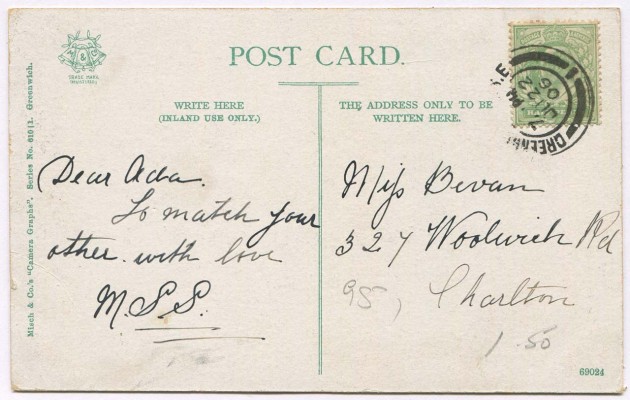 POST CARD.
M & Co
TRADE MARK
WRITE HERE
(INLAND USE ONLY.)
THE ADDRESS ONLY TO BE
WRITTEN HERE.
Dear Ada.
To match your
other. with love
M.S.S.
Miss Bevan
327 Woolwich Rd
95, Charlton
1.50
Misch & Co.'s "Camera Graphs". Series No. 610/1. Greenwich.
69024